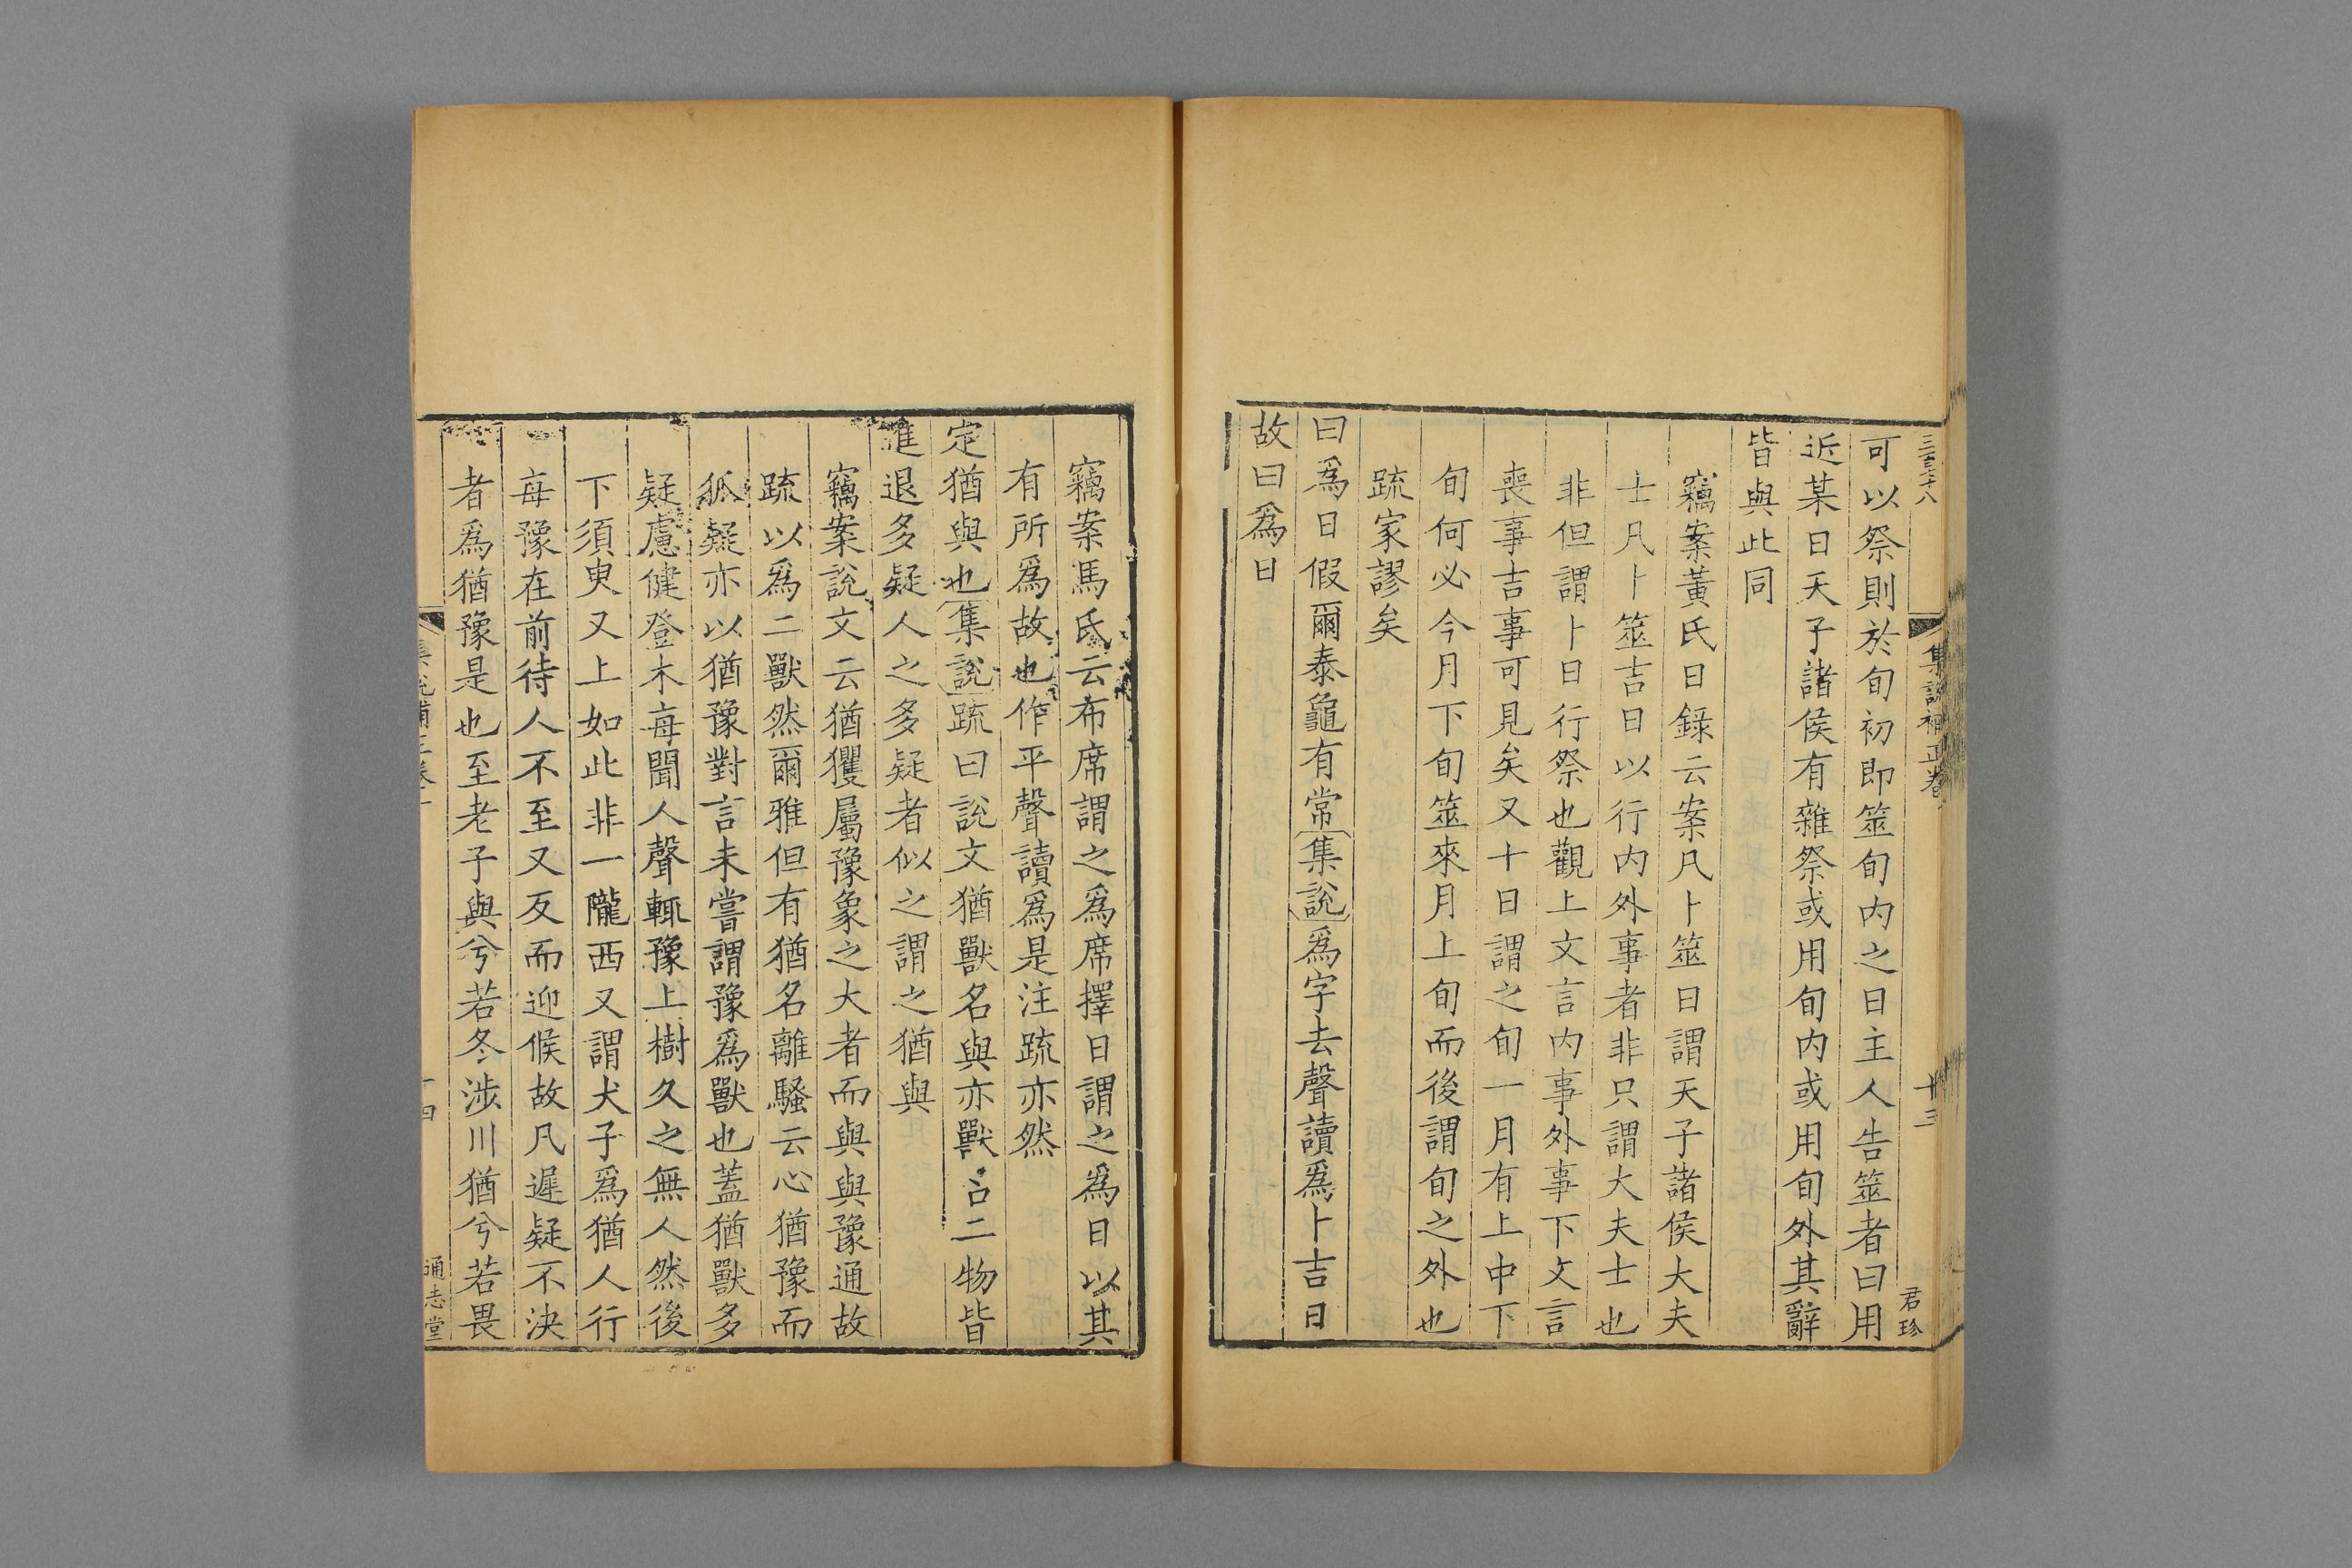 集說補正卷
君珍
可以祭則於旬初即筮旬内之日主人告筮者曰用
近某日天子諸侯有雜祭或用旬内或用旬外其辭
皆與此同
竊案黃氏日錄云案凡卜筮日謂天子諸侯大夫
士凡卜筮吉日以行内外事者非只謂大夫士也
非但謂卜日行祭也觀上文言内事外事下文言
喪事吉事可見矣又十日謂之旬一月有上中下
旬何必今月下旬筮來月上旬而後謂旬之外也
疏家謬矣
曰爲日假爾泰龜有常集說爲字去聲讀爲卜吉日
故曰爲日
竊案馬氏云布席謂之爲席擇日謂之爲日以其
有所爲故也作平聲讀爲是注疏亦然
定猶與也集說疏曰說文猶獸名與亦獸名二物皆
進退多疑人之多疑者似之謂之猶與
竊案說文云猶玃屬豫象之大者而與與豫通故
疏以爲二獸然爾雅但有猶名離騷云心猶豫而
狐疑亦以猶豫對言未嘗謂豫爲獸也蓋猶獸多
疑慮健登木每聞人聲輒豫上樹久之無人然後
下須臾又上如此非一隴西又謂犬子爲猶人行
每豫在前待人不至又反而迎候故凡遲疑不決
者爲猶豫是也至老子與兮若冬涉川猶兮若畏
集說補正卷一
十四
通志堂